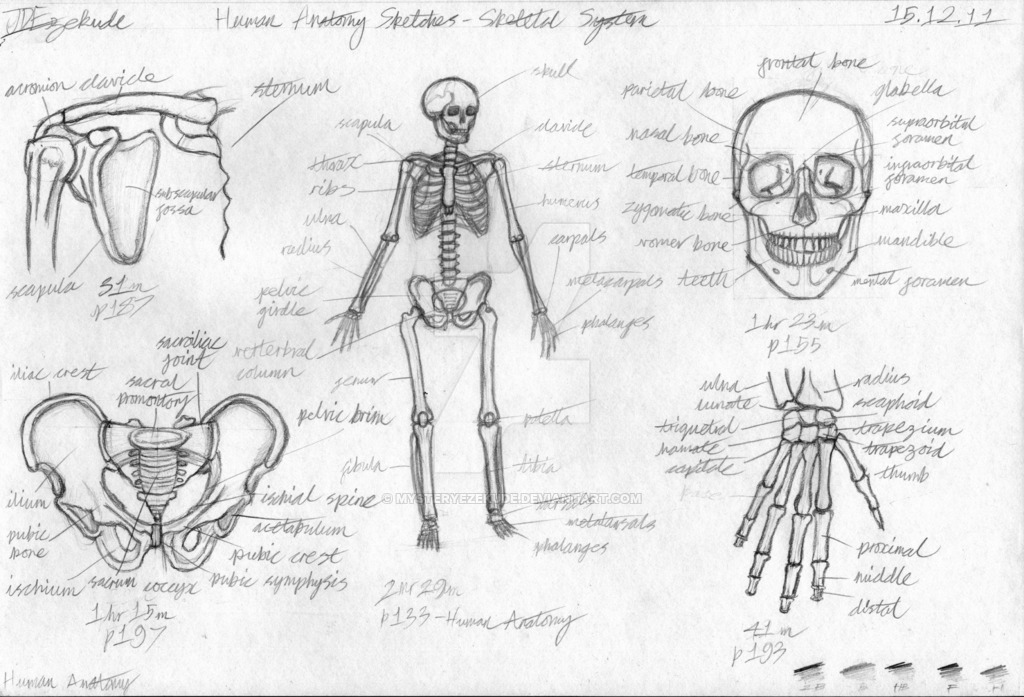 JDEzekude
Human Anatomy Sketches - Skeletal System
15.12.11
acromion
clavicle
sternum
subscapular
fossa
scapula
51m
p187
skull
scapula
clavicle
thorax
sternum
ribs
humerus
ulna
carpals
radius
metacarpals
pelvic
girdle
phalanges
vertebral
column
femur
patella
fibula
tibia
tarsals
metatarsals
phalanges
2hr 29m
p133 - Human Anatomy
frontal bone
parietal bone
glabella
nasal bone
supraorbital
foramen
temporal bone
infraorbital
foramen
zygomatic bone
maxilla
vomer bone
mandible
teeth
mental foramen
1hr 23m
p155
sacroiliac
joint
iliac crest
sacral
promontory
pelvic brim
ilium
ischial spine
acetabulum
pubic
bone
pubic crest
ischium
sacrum
coccyx
pubic symphysis
1hr 15m
p197
ulna
radius
lunate
scaphoid
triquetral
trapezium
hamate
trapezoid
capitate
thumb
proximal
middle
distal
41m
p193
© MYSTERYEZEKUDE.DEVIANTART.COM
Human Anatomy
2B
B
HB
F
H